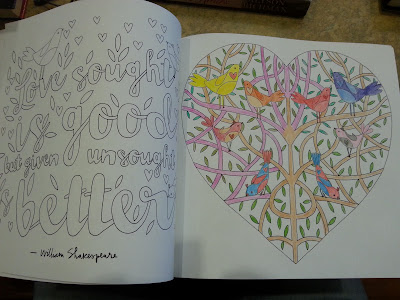 Love sought
is good
but given unsought
is better
— William Shakespeare